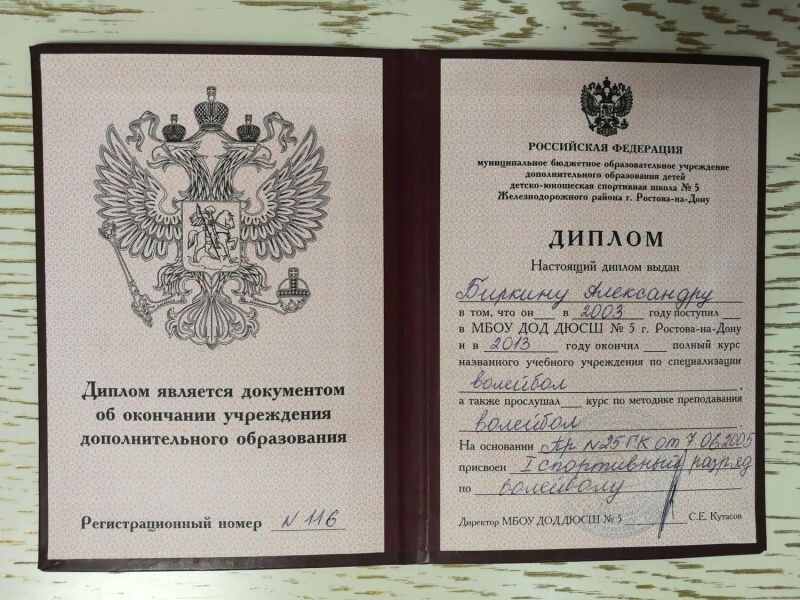 Диплом является документом
об окончании учреждения
дополнительного образования
Регистрационный номер N 116
РОССИЙСКАЯ ФЕДЕРАЦИЯ
муниципальное бюджетное образовательное учреждение
дополнительного образования детей
детско-юношеская спортивная школа № 5
Железнодорожного района г. Ростова-на-Дону
ДИПЛОМ
Настоящий диплом выдан
Биркину Александру
в том, что он в 2003 году поступил
в МБОУ ДОД ДЮСШ № 5 г. Ростова-на-Дону
и в 2013 году окончил полный курс
названного учебного учреждения по специализации
волейбол,
а также прослушал курс по методике преподавания
волейбол.
На основании Пр N25 ГК от 7.06.2005
присвоен I спортивный разряд
по волейболу
Директор МБОУ ДОД ДЮСШ № 5 С.Е. Кутасов